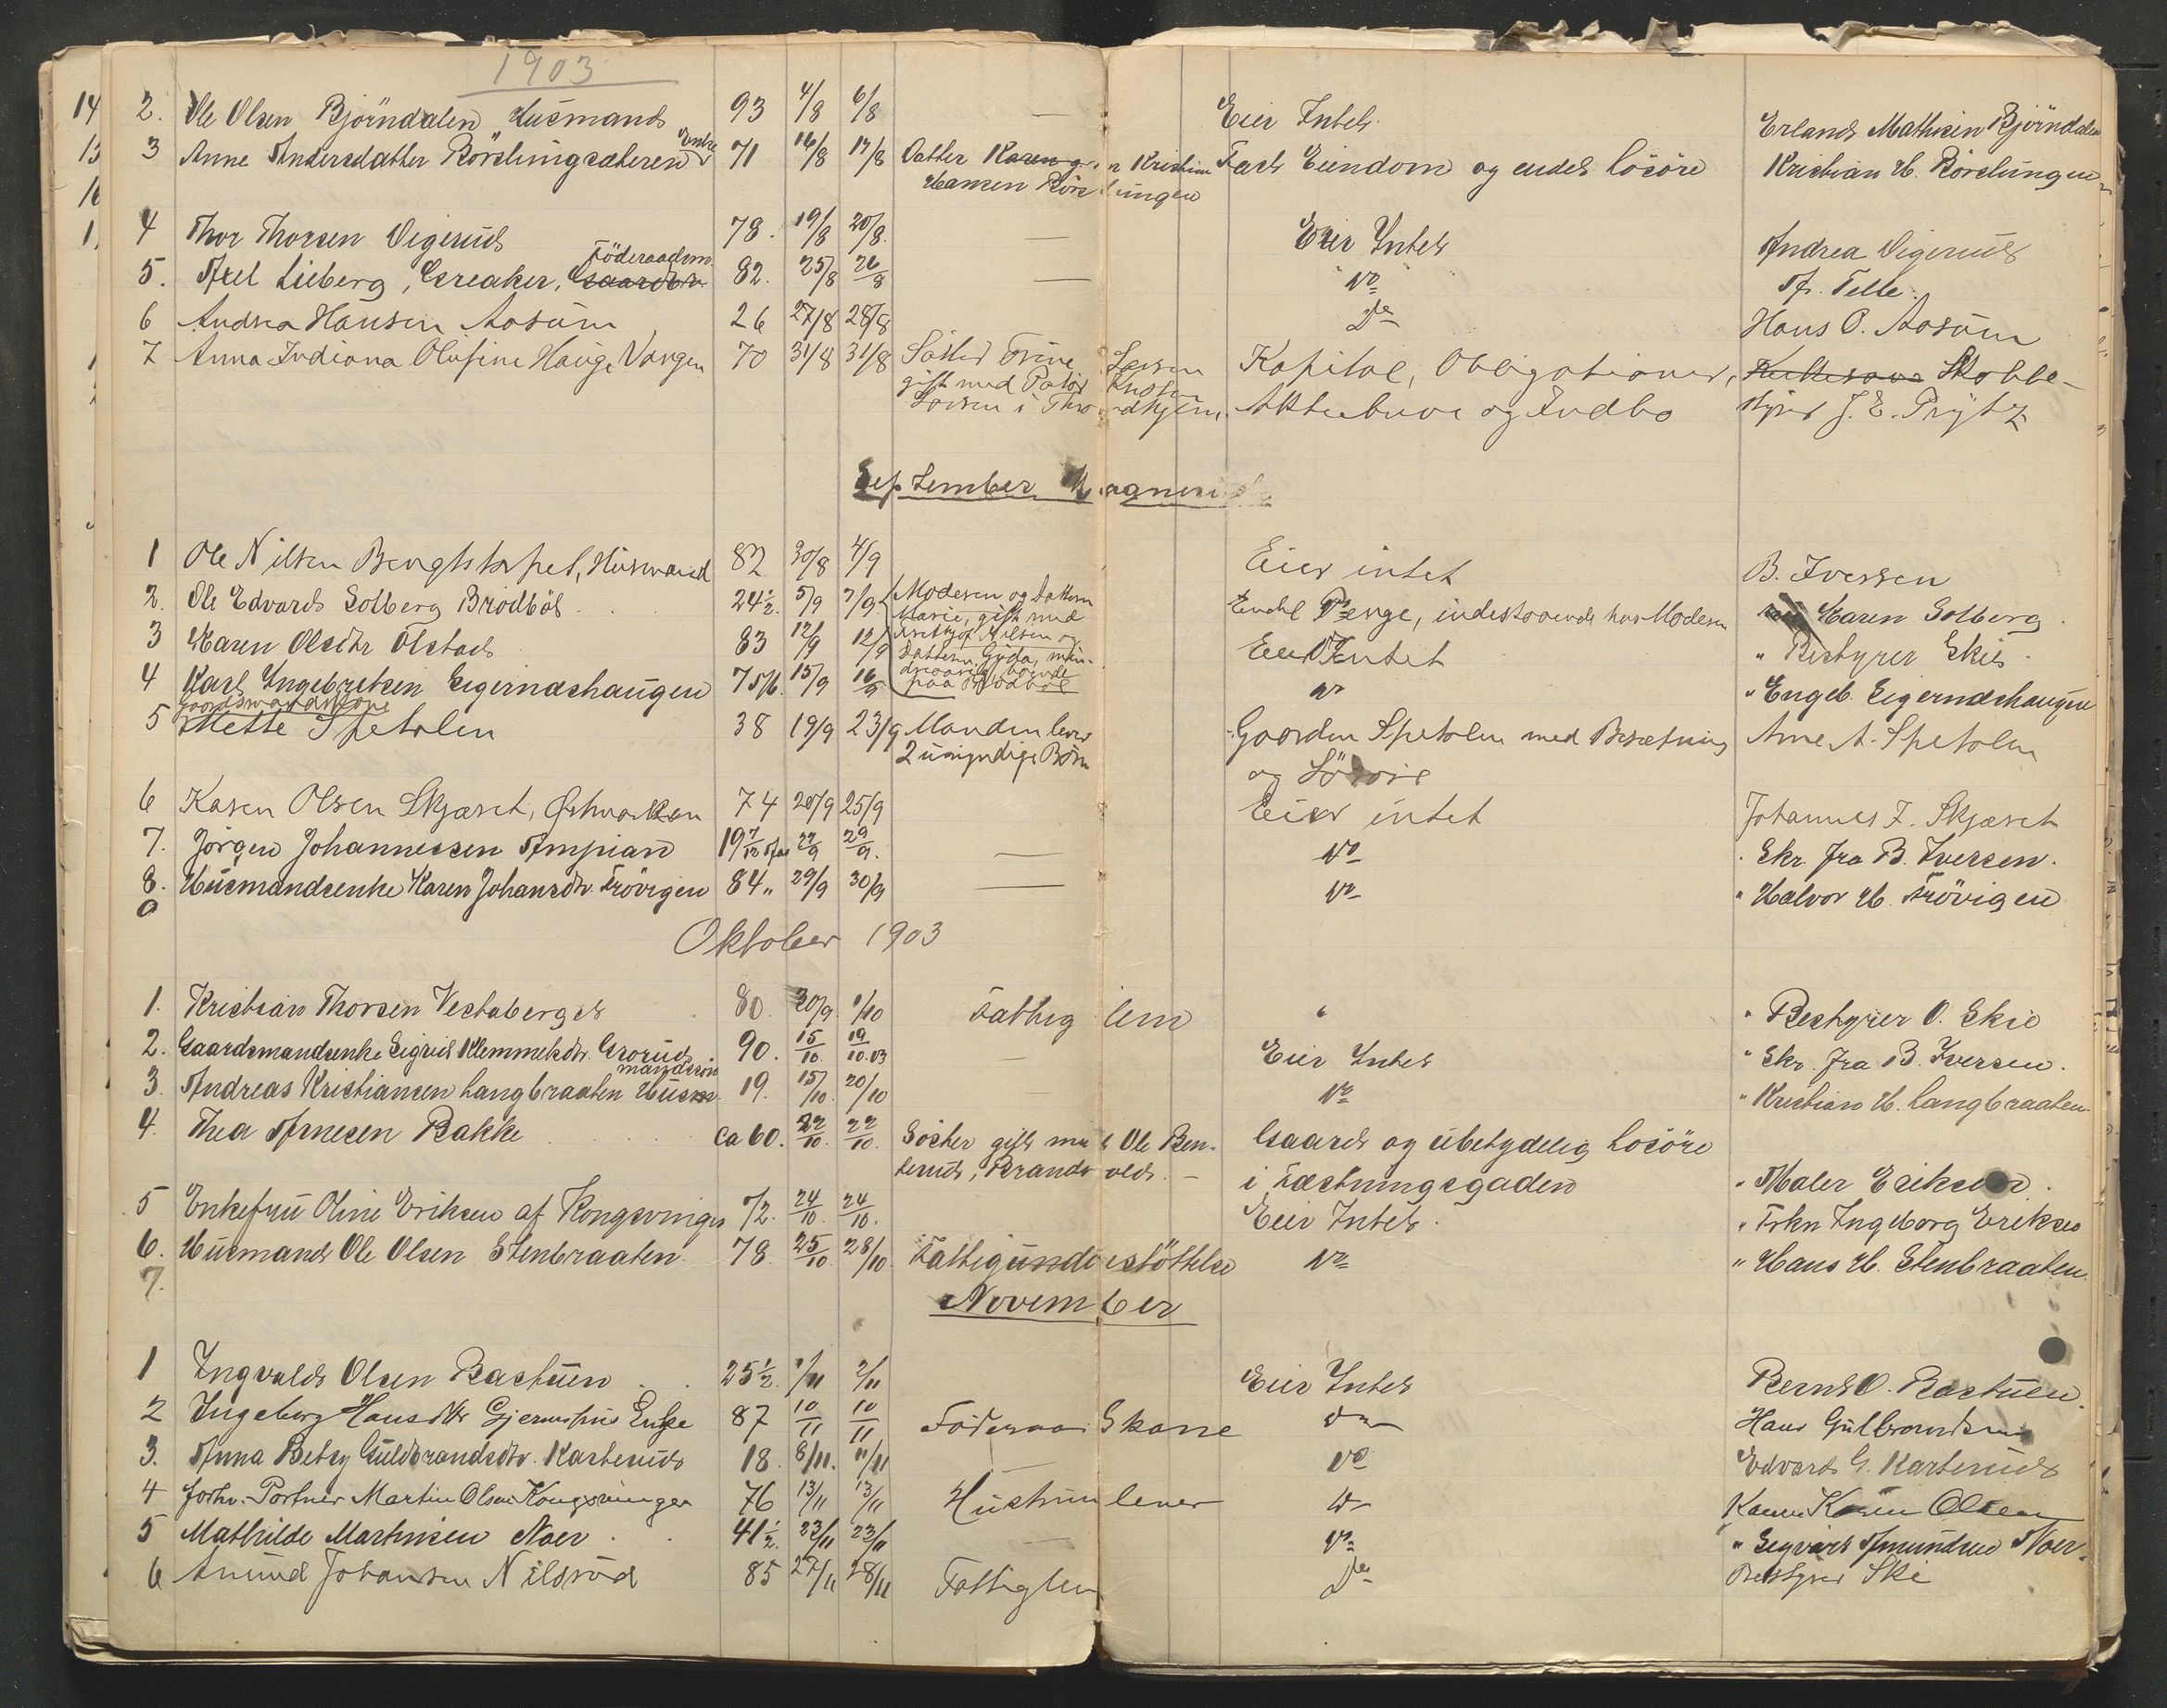 1903
2. Ole Olsen Björndalen, Husmand 93 4/8 6/8 — Eier Intet. Erland Mathisen Björndalen
3 Anne Andersdatter Rörslungsæteren Enke 71 16/8 17/8 Datter Karen gift Kristian Fast Eiendom og endel Lösöre Kristian H. Rörslungen
Hansen Rörslungen
4 Thor Thorsen Vigerud 78. 19/8 20/8. — Eier Intet Andrea Vigerud
Föderaadsm
5. Axel Lieberg, Greaker, Gaardbr. 82. 25/8 26/8 — Do A. Telle.
6 Andrea Hansen Aosum 26 27/8 28/8 Do Hans O. Aosum
7 Anna Indiana Olufine Hauge Vangen 70 31/8 31/8 Söster Trine Larsen Kapital, Obligationer, Skatte-
gift med Pastor
Larsen i Throndhjem. Aktiebrev og Indbo styrer J. E. Prytz
September Maaned
1 Ole Nilsen Bengtstorpet, Husmand 82 30/8 4/9 Eier intet B. Iversen
2. Ole Edvard Solberg Brödböl 24 1/2. 5/9 7/9. Moderen og datteren Endel Penge, indestaaende hos Moderen Karen Solberg.
Marie, gift med
3 Maren Olsdtr Olstad 83 12/9 12/9 Nilsen og Eier Intet " Bestyrer Skie.
datteren Gyda, min-
4 Karl Ingebretsen Sigernæshaugen 75 5/6. 15/9 16/9 dreaarig, boende Do " Engeb. Sigernæshaugen
paa Brödböl
Gaardmandskone
5 Mette Spetalen 38 19/9 23/9 Manden lever Gaarden Spetalen med Besætning Arne A. Spetalen
2 umyndige Börn og Lösöre
6 Karen Olsen Skjæret, Östmarken 74 20/9 25/9 Eier intet Johannes F. Skjæret
7. Jörgen Johannessen Ampian 19 7/12 Aar 22/9 29/9. — Do . Skr. fra B. Iversen.
8. Husmandsenke Karen Johansdtr. Trövigen 84 " 29/9 30/9 — Do " Halvor H. Trövigen
9
Oktober 1903
1. Kristian Thorsen Vestaberget 80. 30/9. 1/10 Fattiglem " " Bestyrer O. Skie
2. Gaardmandsenke Sigrid Klemmetsdtr. Grorud. 90. 15/10. 19/10.03 — Eier Intet " Skr. fra B. Iversen.
mandssön
3. Andreas Kristiansen Langbraaten Husm. 19. 15/10. 20/10 — Do " Kristian H. Langbraaten
4. Thea Arnesen Bakke ca 60. 22/10. 22/10. Söster gift med Ole Ben- Gaard og ubetydelig Lösöre
terud, Brandvold. — i Fæstningsgaden " Maler Eriksen.
5 Enkefru Oline Eriksen af Kongsvinger 72. 24/10. 24/10. Eier Intet. " Frkn Ingeborg Eriksen
6. Husmand Ole Olsen Stenbraaten 78. 25/10 28/10. Fattigunderstöttelse Do " Hans H. Stenbraaten.
7.
November
1 Ingvald Olsen Bastuen 25 1/2. 1/11 2/11 Eier Intet Bernt O. Bastuen.
2 Ingeborg Hansdtr Enke 87 10/11 10/11 Föderaadskone Do Hans Gulbrandsen
3. Anna Betsy Guldbrandsdtr. Karterud 18. 8/11. 11/11 — Do Edvard G. Karterud
4 forhv. Portner Martin Olsen Kongsvinger 76 13/11 13/11 Hustrun lever Do Karen Olsen
5 Mathilde Martinsen Noer 41 1/2. 23/11 23/11 — Do " Sigvart Amundsen Noer.
6 Amund Johansen Nilsrud 85 27/11 28/11 Fattiglem Do Bestyrer Ski